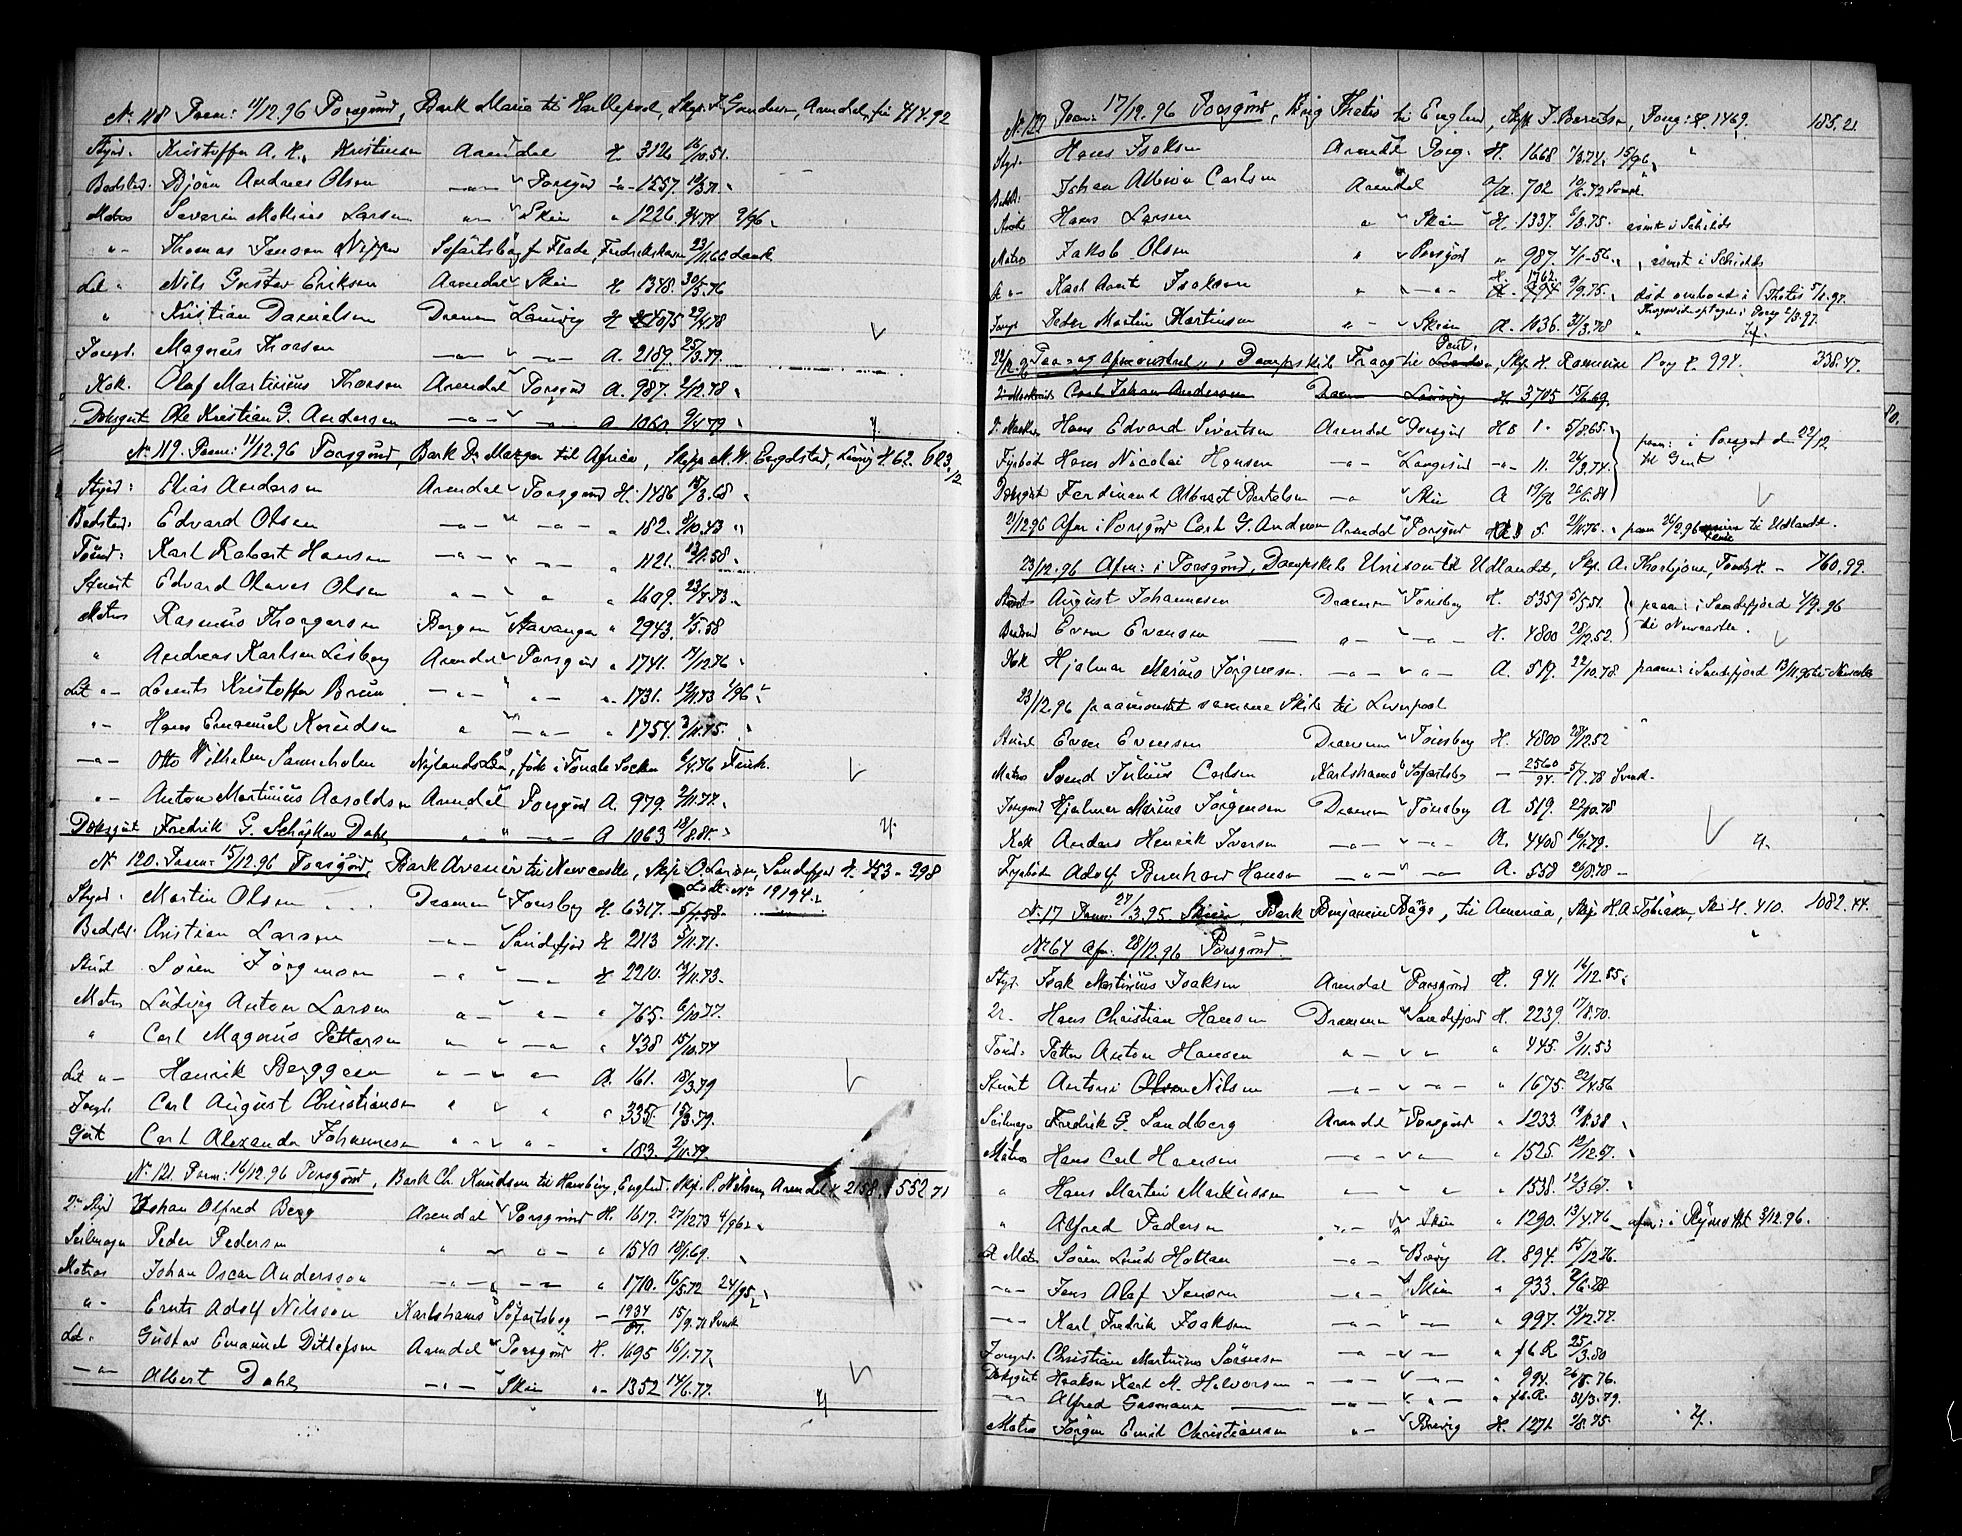 No 118 Paam: 11/12.96 Porsgrund, Bark Maria til Hartlepool, Skpr. Arendal
Styrd. Kristoffer A. Kristensen Arendal H. 3126
Bedstm. Björn Andreas Olsen —„— Porsgrd 1257.
Matros Severin Mathias Larsen „— Skien „ 1226.
„- Thomas Jensen Nipper Söfartsbog fr Flade, Fredrikshavn dansk
Let „ Nils Gustav Eriksen Arendal Skien H 1348. 30/5.76
„ Kristian Danielsen Drammen Laurvig H 4075 29/4.78
Jungd. Magnus Thorsen —„— —„— A. 2189. 25/3.79.
Kok. Olaf Martinius Thorsen Arendal Porsgrd A. 987. 2/12.78
Dæksgut Ole Kristian G. Andersen —„— —„— A 1060. 9/4.79
No 119. Paam: 11/12.96 Porsgrund, Bark til Africa, Skpr. M. W. Engelstad, Laurvig H. 62. 623
Styrd: Elias Andersen Arendal Porsgrund H. 1486 18/3.68
Bedstm: Edvard Olsen —„— —„— „ 182. 8/10.43
Tømd: Karl Robert Hansen —„— „ 1121.
Stuert Edvard Olaves Olsen „— „ „ 1609.
Matros Rasmus Thorgersen Bergen Stavanger „ 2943. 2/5.58
„ Andreas Karlsen Lisberg Arendal Porsgrd „ 1741. 17/12.76
Let „— Lorents Kristoffer Bruun —„— „— „ 1731. 19/11.73
„- Hans Emanuel Knudsen „ —„— „ 1754. 3/11.75.
—„— Otto Wilhelm Sanneholm Nylands Län, född i Tenala Socken 6/4.76 Finsk.
„- Anton Martinius Aasoldsen Arendal Porsgrd A. 979. 2/11.77.
Dæksgut Fredrik G. Dahl „ —„— A 1063 18/8.80.
No 120. Paam: 15/12.96 Porsgrd, Bark Avenir til Newcastle, Skpr. O. Larsen, Sandefjord H. 453 - 298
Styrd. Martin Olsen Drammen Tønsberg H. 6317. 5/7.58. 19194.
Bedstm. Christian Larsen —„— Sandefjord H 2113 5/11.71.
Stuert Søren Jörgensen —„ „— H. 2210. 13/11.73.
Matros Ludvig Anton Larsen „— „— „ 765. 6/10.77.
„ Carl Magnus Pettersen „— —„ „ 438 15/10.74
Let „— Henrik Berggren „— „— A. 161. 18/3.79
Jungd. Carl August Christiansen „ „ „ 335. 15/3.79.
Gut Carl Alexander Johannesen „ „— „ 183. 2/11.79.
No 121. Paam: 16/12.96 Porsgrund, Bark Ch. Knudsen til Hamburg, England. Skpr. P. Nielsen Arendal H. 2158. 552.71
2n Styrd Johan Alfred Berg Arendal Porsgrund H. 1617. 27/12.73
Seilmager Peder Pedersen „ „— „ 1540 18/1.69.
Matros Johan Oscar Andersson —„— —„— „ 1710. 16/5.72 24/95
„- Ernts Adolf Nilsson Karlshamns Söfartsbog - 1934/81. 15/9.71 Svensk
Let „ Gustav Emanuel Ditlefsen Arendal Porsgrund H. 1695 16/1.77.
—„— Albert Dahl —„— Skien „- 1352 14/6.77.
No 122 Paam: 17/12.96 Porsgrund, Brig Thetis til England, Skpr. J. Berentsen, Porsg: H. 1469. 185.21
Styr. Hans Isaksen Arendal Porsg. H. 1668 15/96
Bedstm: Johan Albin Carlsen Arendal 702 Svensk
Hans Larsen „ Skien H. 1337. 6/3.75. rømt i Schields
Matros Jakob Olsen „ Porsgrd „ 987. 4/1.56. rømt i Schields
„- Karl Arnt Isaksen „ „—„— H. 1762. 994 9/9.75. död ombord i Thetis 5/1.97.
Jungd Peder Martin Martinsen „— Skien A. 1036. 31/3.78
22/12.96 Paa- og Afmönstret, Dampskib Fraag til Gent, Skpr. H. Porsg H. 994. 338.47.
2. Maskinist Carl Johan Andersen Drammen Laurvig H. 3705 15/6.69.
2. Maskin Hans Edvard Sivertsen Arendal Porsgrd H B 1. 5/8.65. paam: i Porsgrd den 22/12
Fyrböd Hans Nicolai Hansen —„— Langesund —„— 11. 24/3.74. til Gent
Dæksgut Ferdinand Albert Bertelsen —„ Skien A 19/96 26/6.81
21/12.96 Afm i Porsgrd Carl G. Andersen Arendal Porsgrd 5. paam 22/12.96 til Udlandet.
23/12.96 Afm: i Porsgrund, Dampskib Unison til Udlandet, Skpr. A. Thorbjørnsen, Tønsbg H. - 760.99.
Stuert August Johannesen Drammen Tønsberg H. 5359 5/5.51. paam: i Sandefjord 4/9.96
Bestmd Even Evensen „— „— H. 4800 28/12.52. til Newcastle.
Kok Hjalmar Marius Jörgensen —„— „— A. 519. 22/10.78. paam: i Sandefjord 13/11.96 til Newcastle
23/12.96 paamönstret samme Skib til Liverpool
Stuert Even Evensen Drammen Tönsberg H. 4800 28/12.52
Matros Svend Julius Carlsen Karlshamns Söfartsbg — 2560/94. 5/7.78 Svensk.
Jungmd Hjalmar Marius Jörgensen Drammen Tønsberg A. 519. 22/10.78
Kok Anders Henrik Iversen „— „— A. 4408 16/1.79.
Fyrböd Adolf Bernhard Hansen —„— —„— A. 558 26/8.78 —
No 17 Paam: 27/3.95 Skien, Bark Benjamin Bage, til America, Skpr. H. A. Tobiasen, Skien H. 410. 1082.44.
No 64 Afm. 28/12.96 Porsgrund.
Styr. Isak Martinius Isaksen Arendal Porsgrund H. 941. 16/12.55
2r. Hans Christian Hansen Drammen Sandefjord H. 2239. 17/8.70.
Tömd. Petter Anton Hansen „ „ „ 445. 3/11.53
Stuert Antoni Olsen Nilsen —„— —„— „ 1675. 22/4.56
Seilmager Fredrik G. Sandberg Arendal Porsgrund „ 1233. 19/8.38
Matros Hans Carl Hansen —„— „— „ 1525. 12/12.57.
„ Hans Martin Markussen „— „ „ 1538. 12/3.67.
„ Alfred Pedersen „— Skien „ 1290. 13/4.76 afm: i 3/12.96.
Matros Sören Lund Holtan —„— Brevig A. 894. 15/12.76.
—„— Jens Olaf Jensen —„— Skien „ 933. 2/6.78
—„— Karl Fredrik Isaksen —„— —„— „ 997. 13/12.77.
Jungd. Christian Martinus Sörensen —„— „— „ fl. R 25/3.80
Dæksgut Haakon Karl M. Halvorsen —„— —„— „ 994. 26/8.76.
—„— Alfred Gasmann —„— „— „ fl. R. 31/3.79.
Matros Jörgen Emil Christiansen „— Brevig H. 1271. 2/8.75